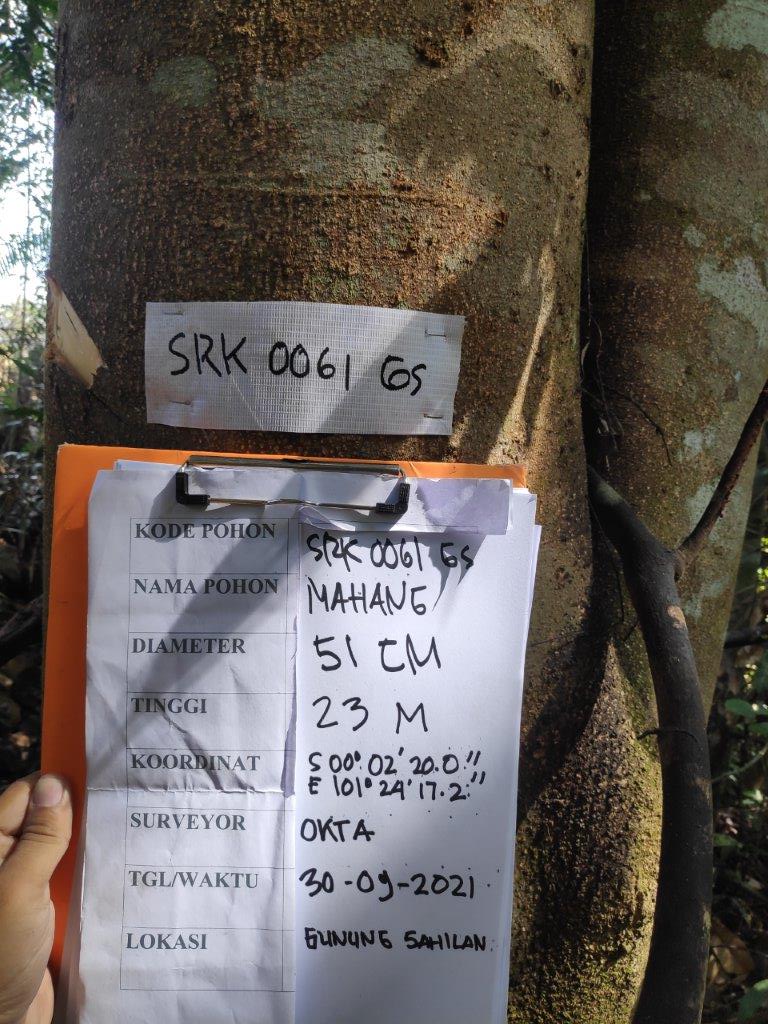 SRK 0061 GS
KODE POHON SRK 0061 GS
NAMA POHON MAHANG
DIAMETER 51 CM
TINGGI 23 M
KOORDINAT S 00° 02' 20.0"
E 101° 24' 17.2"
SURVEYOR OKTA
TGL/WAKTU 30-09-2021
LOKASI GUNUNG SAHILAN